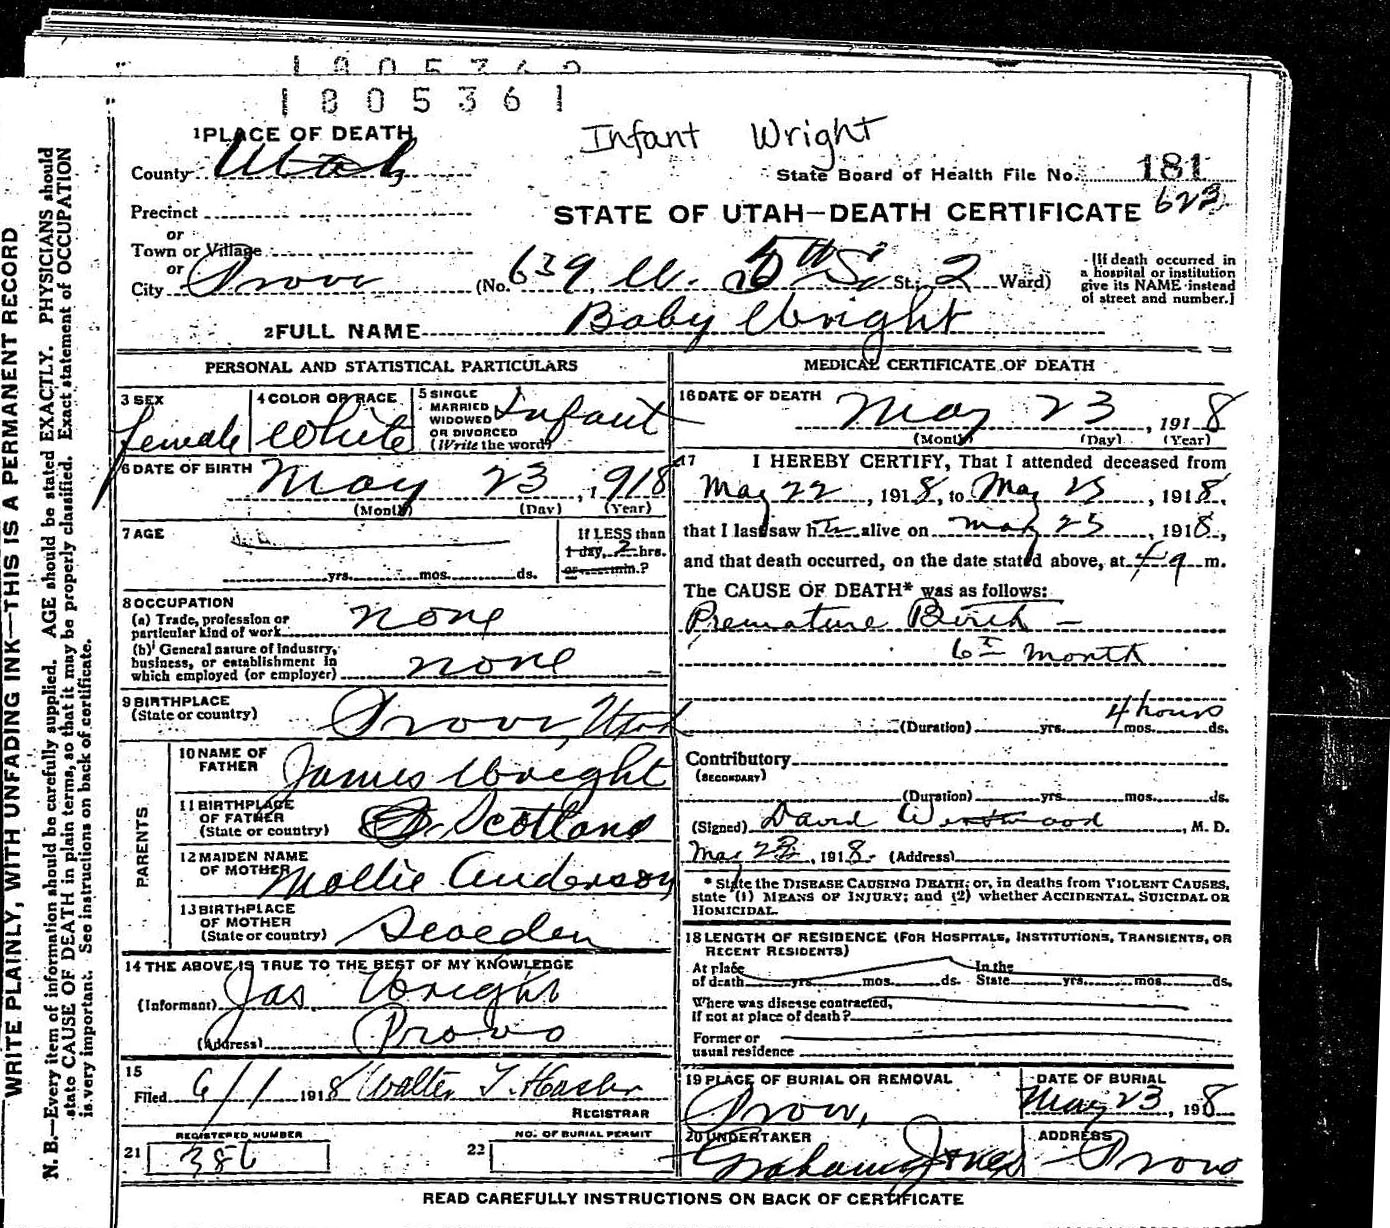 1805362
1805361
Infant Wright
1 PLACE OF DEATH
County Utah
State Board of Health File No. 181
623
Precinct
STATE OF UTAH—DEATH CERTIFICATE
or
Town or Village
or
City Provo (No. 639 W. 5th So St.; 2 Ward)
[If death occurred in
a hospital or institution
give its NAME instead
of street and number.]
2 FULL NAME Baby Wright
PERSONAL AND STATISTICAL PARTICULARS
3 SEX
female
4 COLOR OR RACE
White
5 SINGLE
MARRIED
WIDOWED
OR DIVORCED
(Write the word)
Infant
6 DATE OF BIRTH
May 23, 1918
(Month) (Day) (Year)
7 AGE
yrs. mos. ds.
If LESS than
1 day, 2 hrs.
or min.?
8 OCCUPATION
(a) Trade, profession or
particular kind of work none
(b) General nature of Industry,
business, or establishment in
which employed (or employer) none
9 BIRTHPLACE
(State or country) Provo, Utah
PARENTS
10 NAME OF
FATHER James Wright
11 BIRTHPLACE
OF FATHER
(State or country) Scotland
12 MAIDEN NAME
OF MOTHER Mollie Anderson
13 BIRTHPLACE
OF MOTHER
(State or country) Sweden
14 THE ABOVE IS TRUE TO THE BEST OF MY KNOWLEDGE
(Informant) Jas Wright
(Address) Provo
15
Filed 6/1 1918 Walter T. Hasler
REGISTRAR
21 REGISTERED NUMBER
386
22 NO. OF BURIAL PERMIT
MEDICAL CERTIFICATE OF DEATH
16 DATE OF DEATH
May 23, 1918
(Month) (Day) (Year)
17 I HEREBY CERTIFY, That I attended deceased from
May 22, 1918, to May 23, 1918,
that I last saw h alive on May 23, 1918,
and that death occurred, on the date stated above, at m.
The CAUSE OF DEATH* was as follows:
Premature Birth —
6th month
4 hours
(Duration) yrs. mos. ds.
Contributory
(SECONDARY)
(Duration) yrs. mos. ds.
(Signed) David Westwood, M. D.
May 23, 1918. (Address)
* State the DISEASE CAUSING DEATH; or, in deaths from VIOLENT CAUSES,
state (1) MEANS OF INJURY; and (2) whether ACCIDENTAL, SUICIDAL OR
HOMICIDAL.
18 LENGTH OF RESIDENCE (FOR HOSPITALS, INSTITUTIONS, TRANSIENTS, OR
RECENT RESIDENTS)
At place In the
of death yrs. mos. ds. State yrs. mos. ds.
Where was disease contracted,
if not at place of death?
Former or
usual residence
19 PLACE OF BURIAL OR REMOVAL
Provo,
DATE OF BURIAL
May 23, 1918
20 UNDERTAKER
Graham Jones
ADDRESS
Provo
READ CAREFULLY INSTRUCTIONS ON BACK OF CERTIFICATE
WRITE PLAINLY, WITH UNFADING INK—THIS IS A PERMANENT RECORD
N. B.—Every item of information should be carefully supplied. AGE should be stated EXACTLY. PHYSICIANS should
state CAUSE OF DEATH in plain terms, so that it may be properly classified. Exact statement of OCCUPATION
is very important. See instructions on back of certificate.